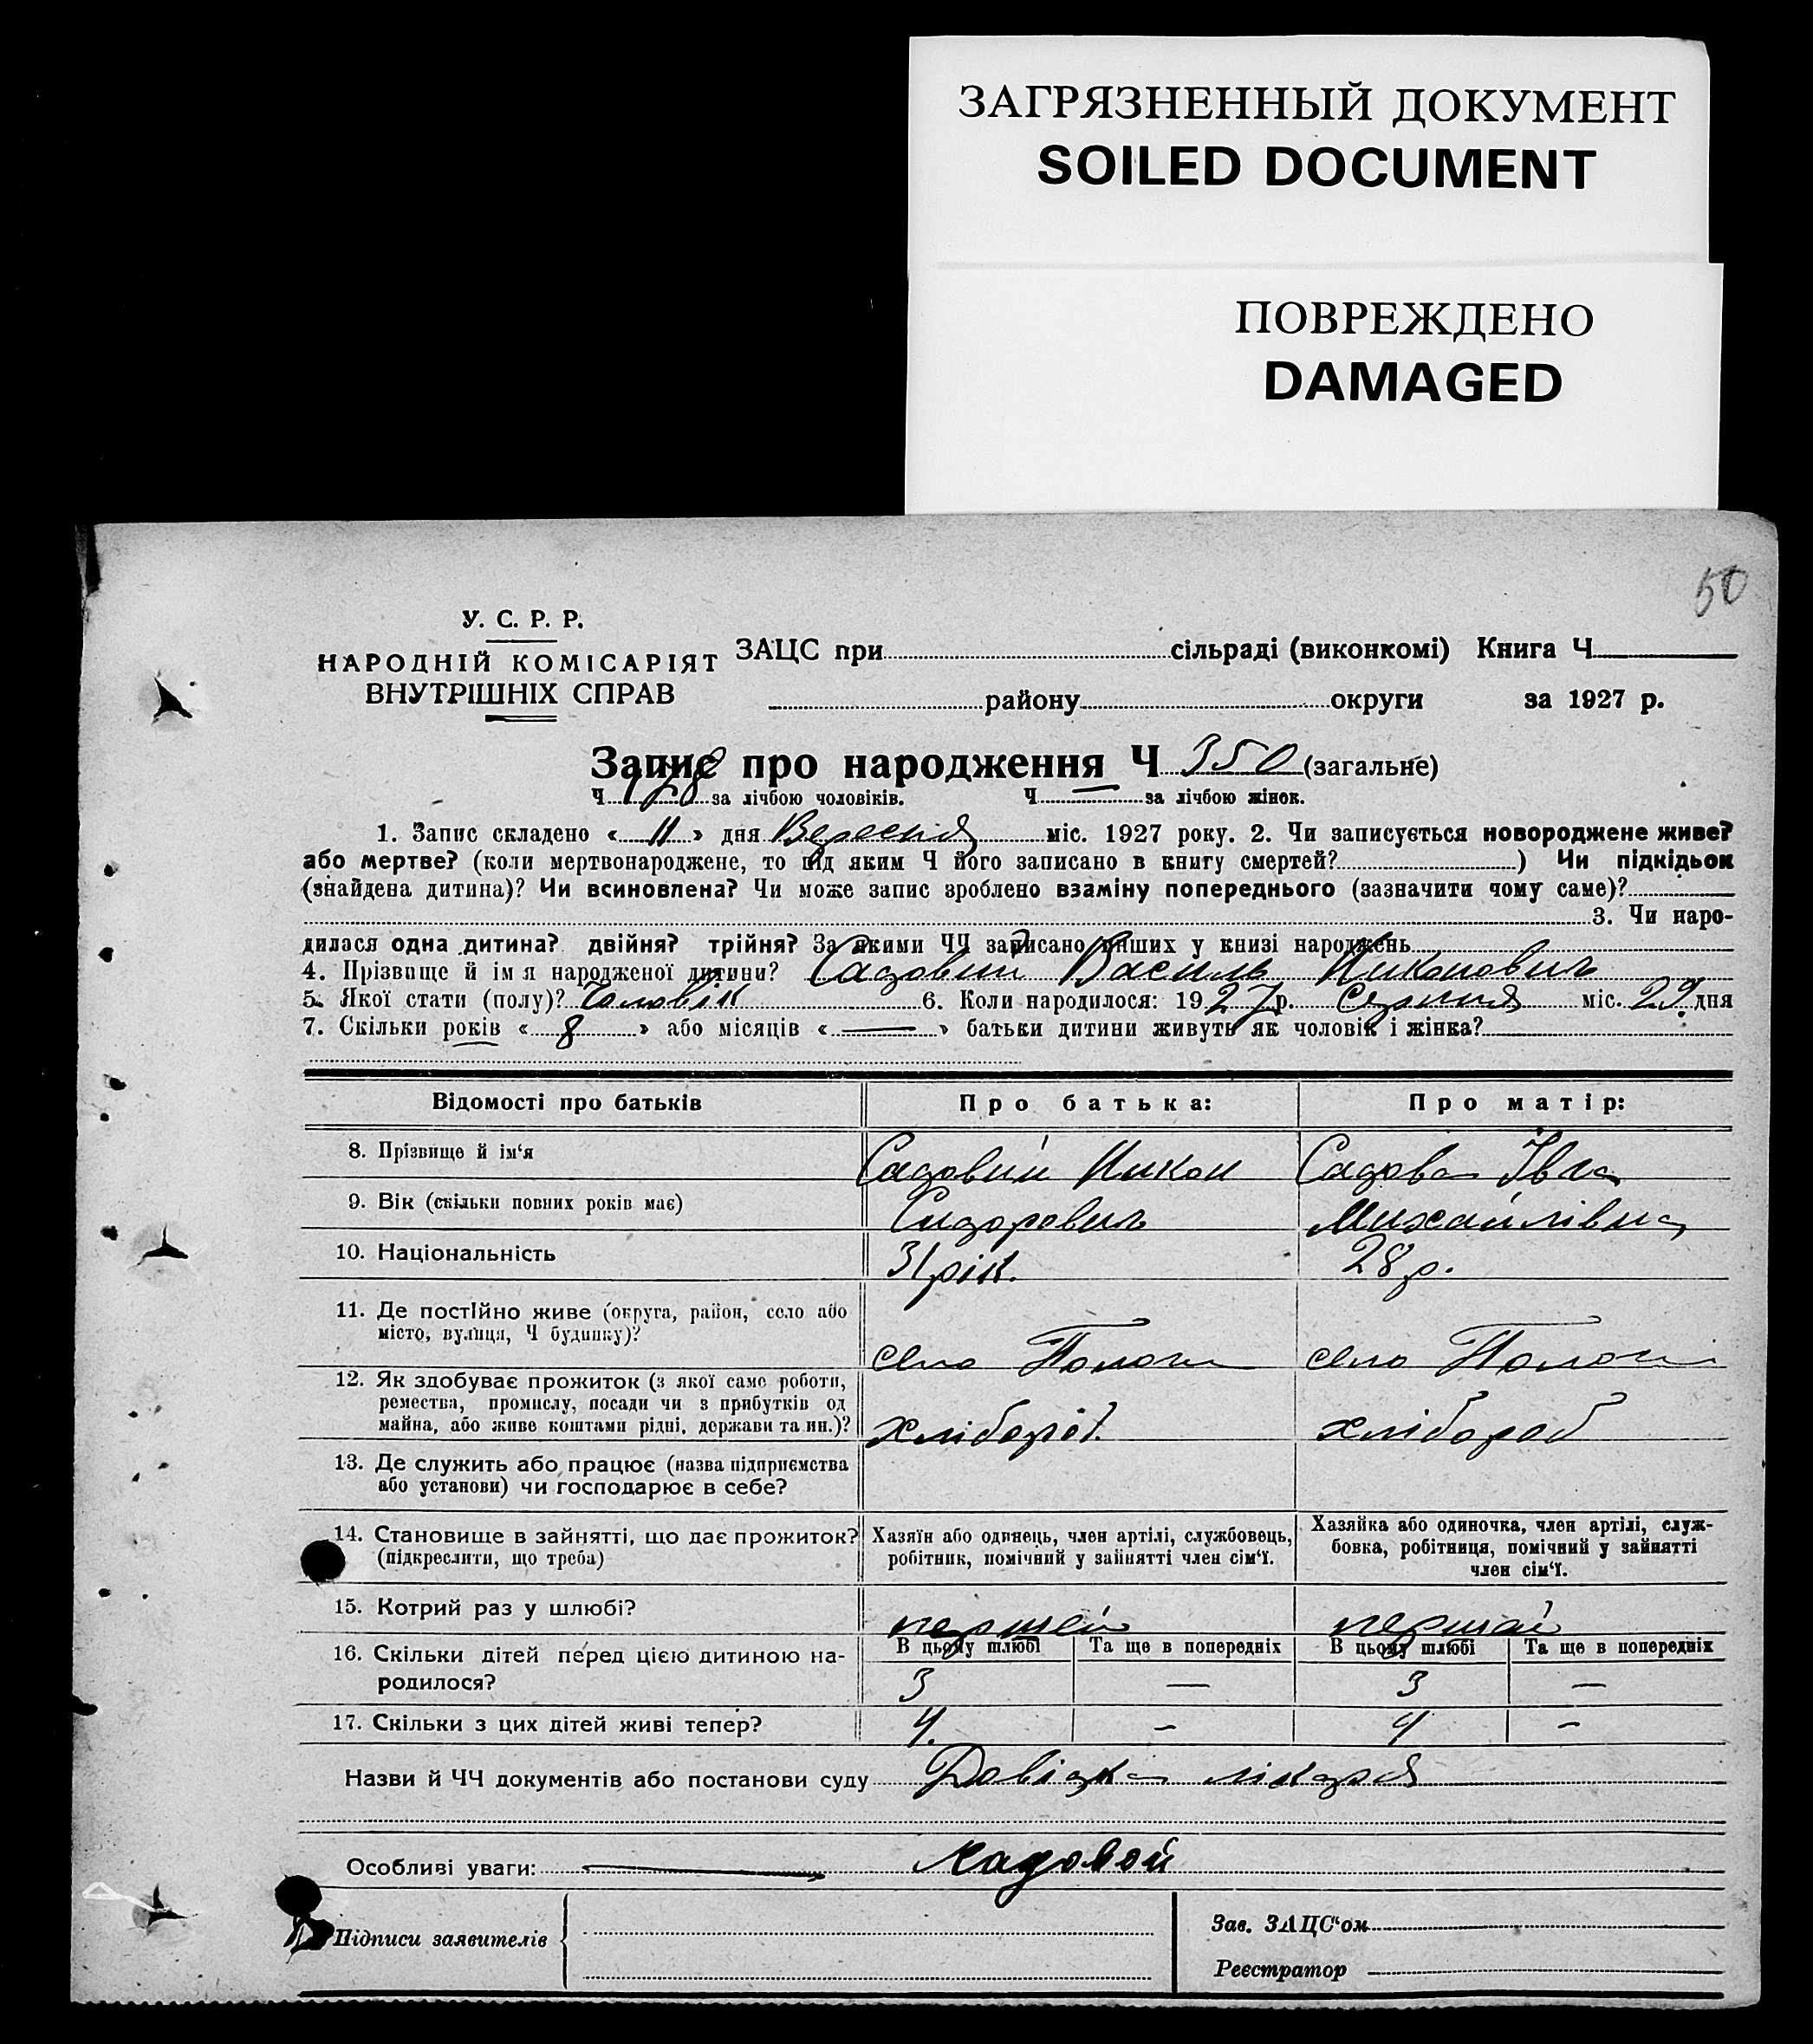 ЗАГРЯЗНЕННЫЙ ДОКУМЕНТ
SOILED DOCUMENT
ПОВРЕЖДЕНО
DAMAGED
50
У. С. Р. Р.
НАРОДНІЙ КОМІСАРІЯТ
ВНУТРІШНІХ СПРАВ
ЗАЦС при сільраді (виконкомі) Книга Ч
району округи за 1927 р.
Запис про народження Ч 350 (загальне)
Ч. 178 за лічбою чоловіків. Ч. — за лічбою жінок.
1. Запис складено « 11 » дня Вересня міс. 1927 року. 2. Чи записується новороджене живе?
або мертве? (коли мертвонароджене, то під яким Ч його записано в книгу смертей? ) Чи підкідьок
(знайдена дитина)? Чи всиновлена? Чи може запис зроблено взаміну попереднього (зазначити чому саме)?
3. Чи наро-
дилася одна дитина? двійня? трійня? За якими ЧЧ записано инших у книзі народжень
4. Прізвище й ім я народженої дитини? Садовий Василь Никонович
5. Якої стати (полу)? Чоловік 6. Коли народилося: 1927 р. Серпня міс. 29 дня
7. Скільки років « 8 » або місяців « — » батьки дитини живуть як чоловік і жінка?
Відомості про батьків Про батька: Про матір:
8. Прізвище й ім‘я Садовий Никон Садова Івга
9. Вік (скільки повних років має) Сидорович Михайлівна
10. Національність 31 рік. 28 р.
11. Де постійно живе (округа, район, село або
місто, вулиця, Ч будинку)? село Пологи село Пологи
12. Як здобуває прожиток (з якої саме роботи,
ремества, промислу, посади чи з прибутків од
майна, або живе коштами рідні, держави та ин.)? хлібороб хлібороб
13. Де служить або працює (назва підприємства
або установи) чи господарює в себе?
14. Становище в зайнятті, що дає прожиток?
(підкреслити, що треба)
Хазяїн або одинець, член артілі, службовець,
робітник, помічний у зайнятті член сім‘ї.
Хазяйка або одиночка, член артілі, служ-
бовка, робітниця, помічний у зайнятті
член сім‘ї.
15. Котрий раз у шлюбі? першей першей
В цьому шлюбі Та ще в попередніх В цьому шлюбі Та ще в попередніх
16. Скільки дітей перед цією дитиною на-
родилося? 3 — 3 —
17. Скільки з цих дітей живі тепер? 4. — 4 —
Назви й ЧЧ документів або постанови суду Довідка лікаря
Особливі уваги: — Садовой
Підписи заявителів
Зав. ЗАЦС‘ом
Реєстратор